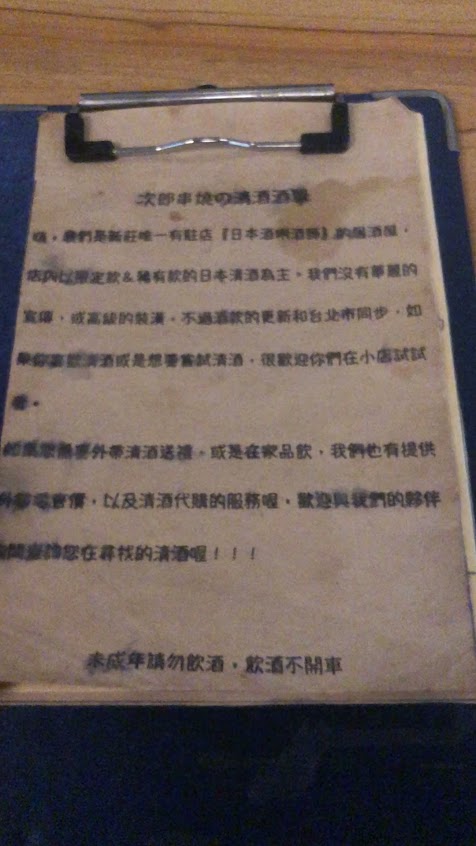 次郎串燒の清酒酒單
嗨，我們是新莊唯一有駐店『日本酒唎酒師』的居酒屋，
店內以限定款&稀有款的日本清酒為主。我們沒有華麗的
宣傳，或高級的裝潢。不過酒款的更新和台北市同步，如
果你喜歡清酒或是想要嘗試清酒，很歡迎你們在小店試試
看。
如果您需要外帶清酒送禮。或是在家品飲，我們也有提供
外帶零售價，以及清酒代購的服務喔，歡迎與我們的夥伴
您在尋找的清酒喔！！！
未成年請勿飲酒，飲酒不開車